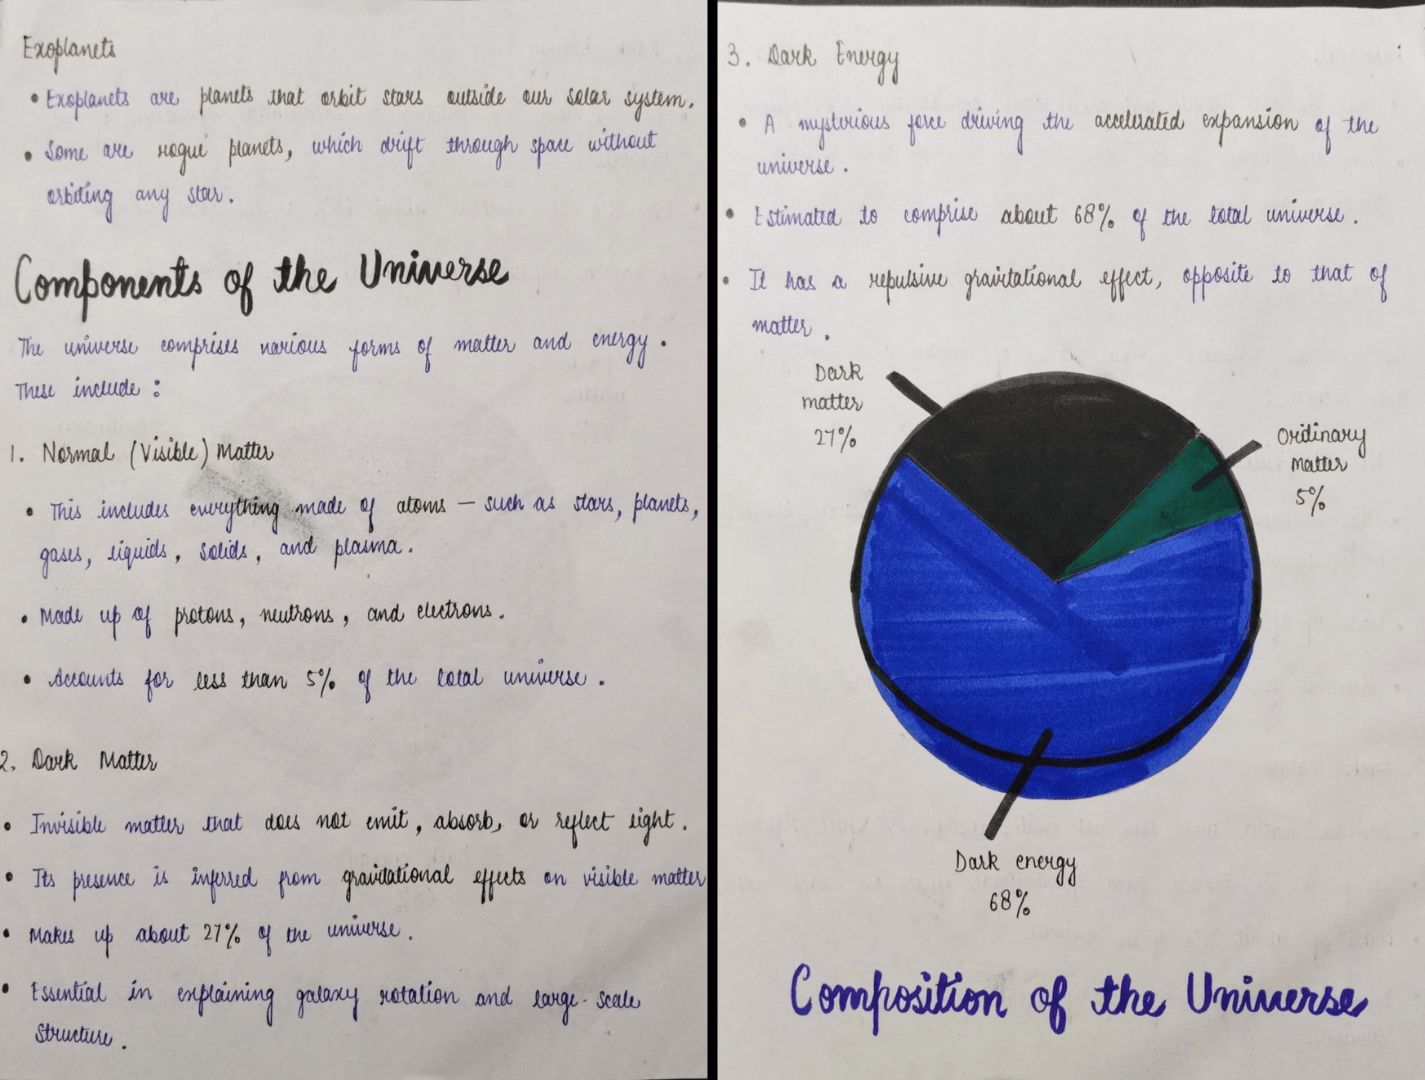 Exoplanets
• Exoplanets are planets that orbit stars outside our solar system.
• Some are rogue planets, which drift through space without
orbiting any star.
Components of the Universe
The universe comprises various forms of matter and energy.
These include :
1. Normal (Visible) Matter
• This includes everything made of atoms – such as stars, planets,
gases, liquids, solids, and plasma.
• Made up of protons, neutrons, and electrons.
• Accounts for less than 5% of the total universe.
2. Dark Matter
• Invisible matter that does not emit, absorb, or reflect light.
• Its presence is inferred from gravitational effects on visible matter
• Makes up about 27% of the universe.
• Essential in explaining galaxy rotation and large-scale
structure.
3. Dark Energy
• A mysterious force driving the accelerated expansion of the
universe.
• Estimated to comprise about 68% of the total universe.
• It has a repulsive gravitational effect, opposite to that of
matter.
Dark
matter
27%
Ordinary
matter
5%
Dark energy
68%
Composition of the Universe